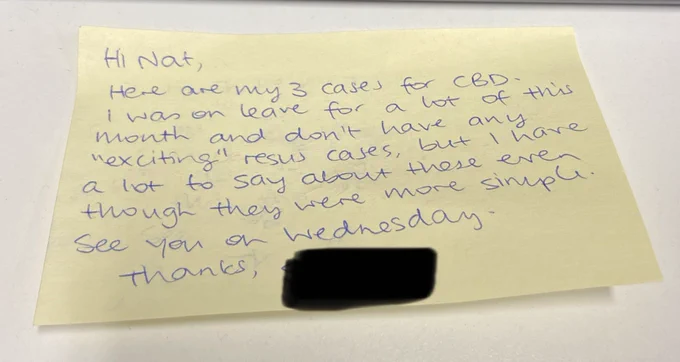 Hi Nat,
Here are my 3 cases for CBD.
I was on leave for a lot of this
month and don't have any
"exciting" resus cases, but I have
a lot to say about these even
though they were more simple.
See you on Wednesday.
Thanks,